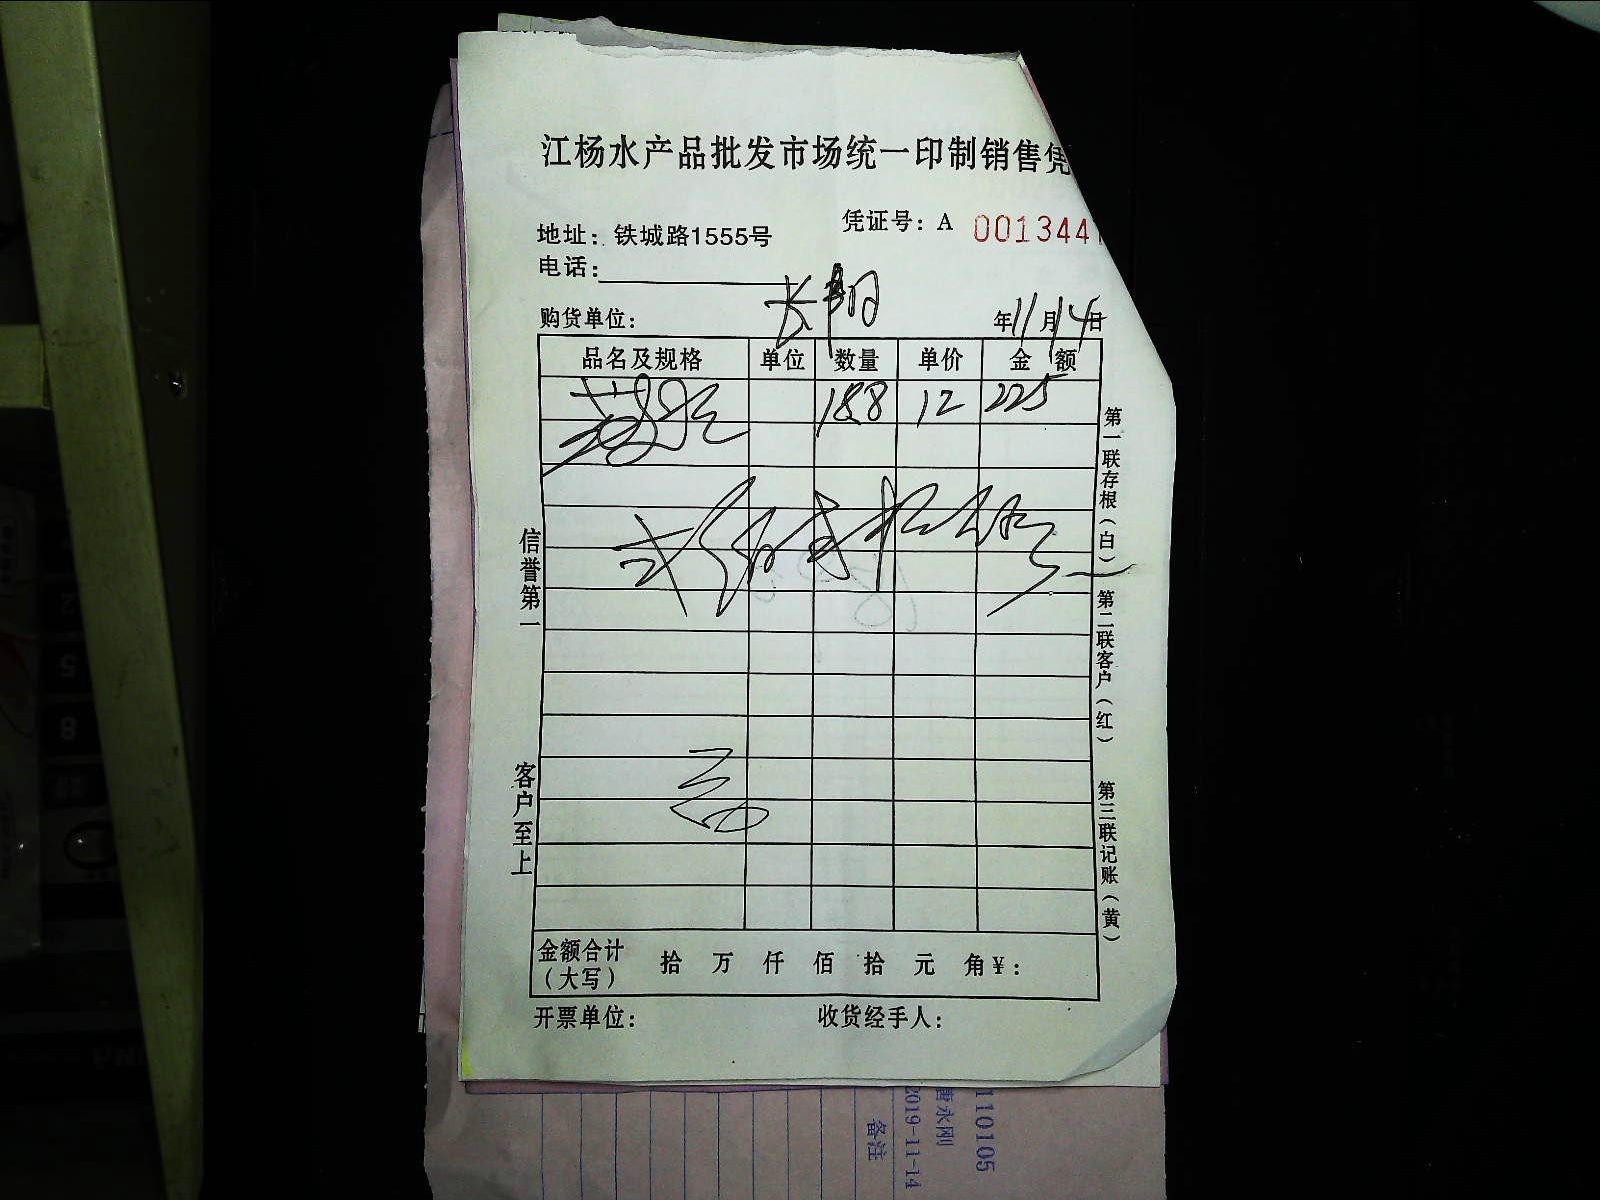 江杨水产品批发市场统一印制销售凭
凭证号：A 001344
地址：铁城路1555号
电话：
购货单位：
年11月14日
品名及规格 单位 数量 单价 金额
188 12 225
信誉第一
客户至上
第一联存根（白） 第二联客户（红） 第三联记账（黄）
金额合计 拾 万 仟 佰 拾 元 角 ¥：
（大写）
开票单位： 收货经手人：
110105
唐永刚
2019-11-14
备注